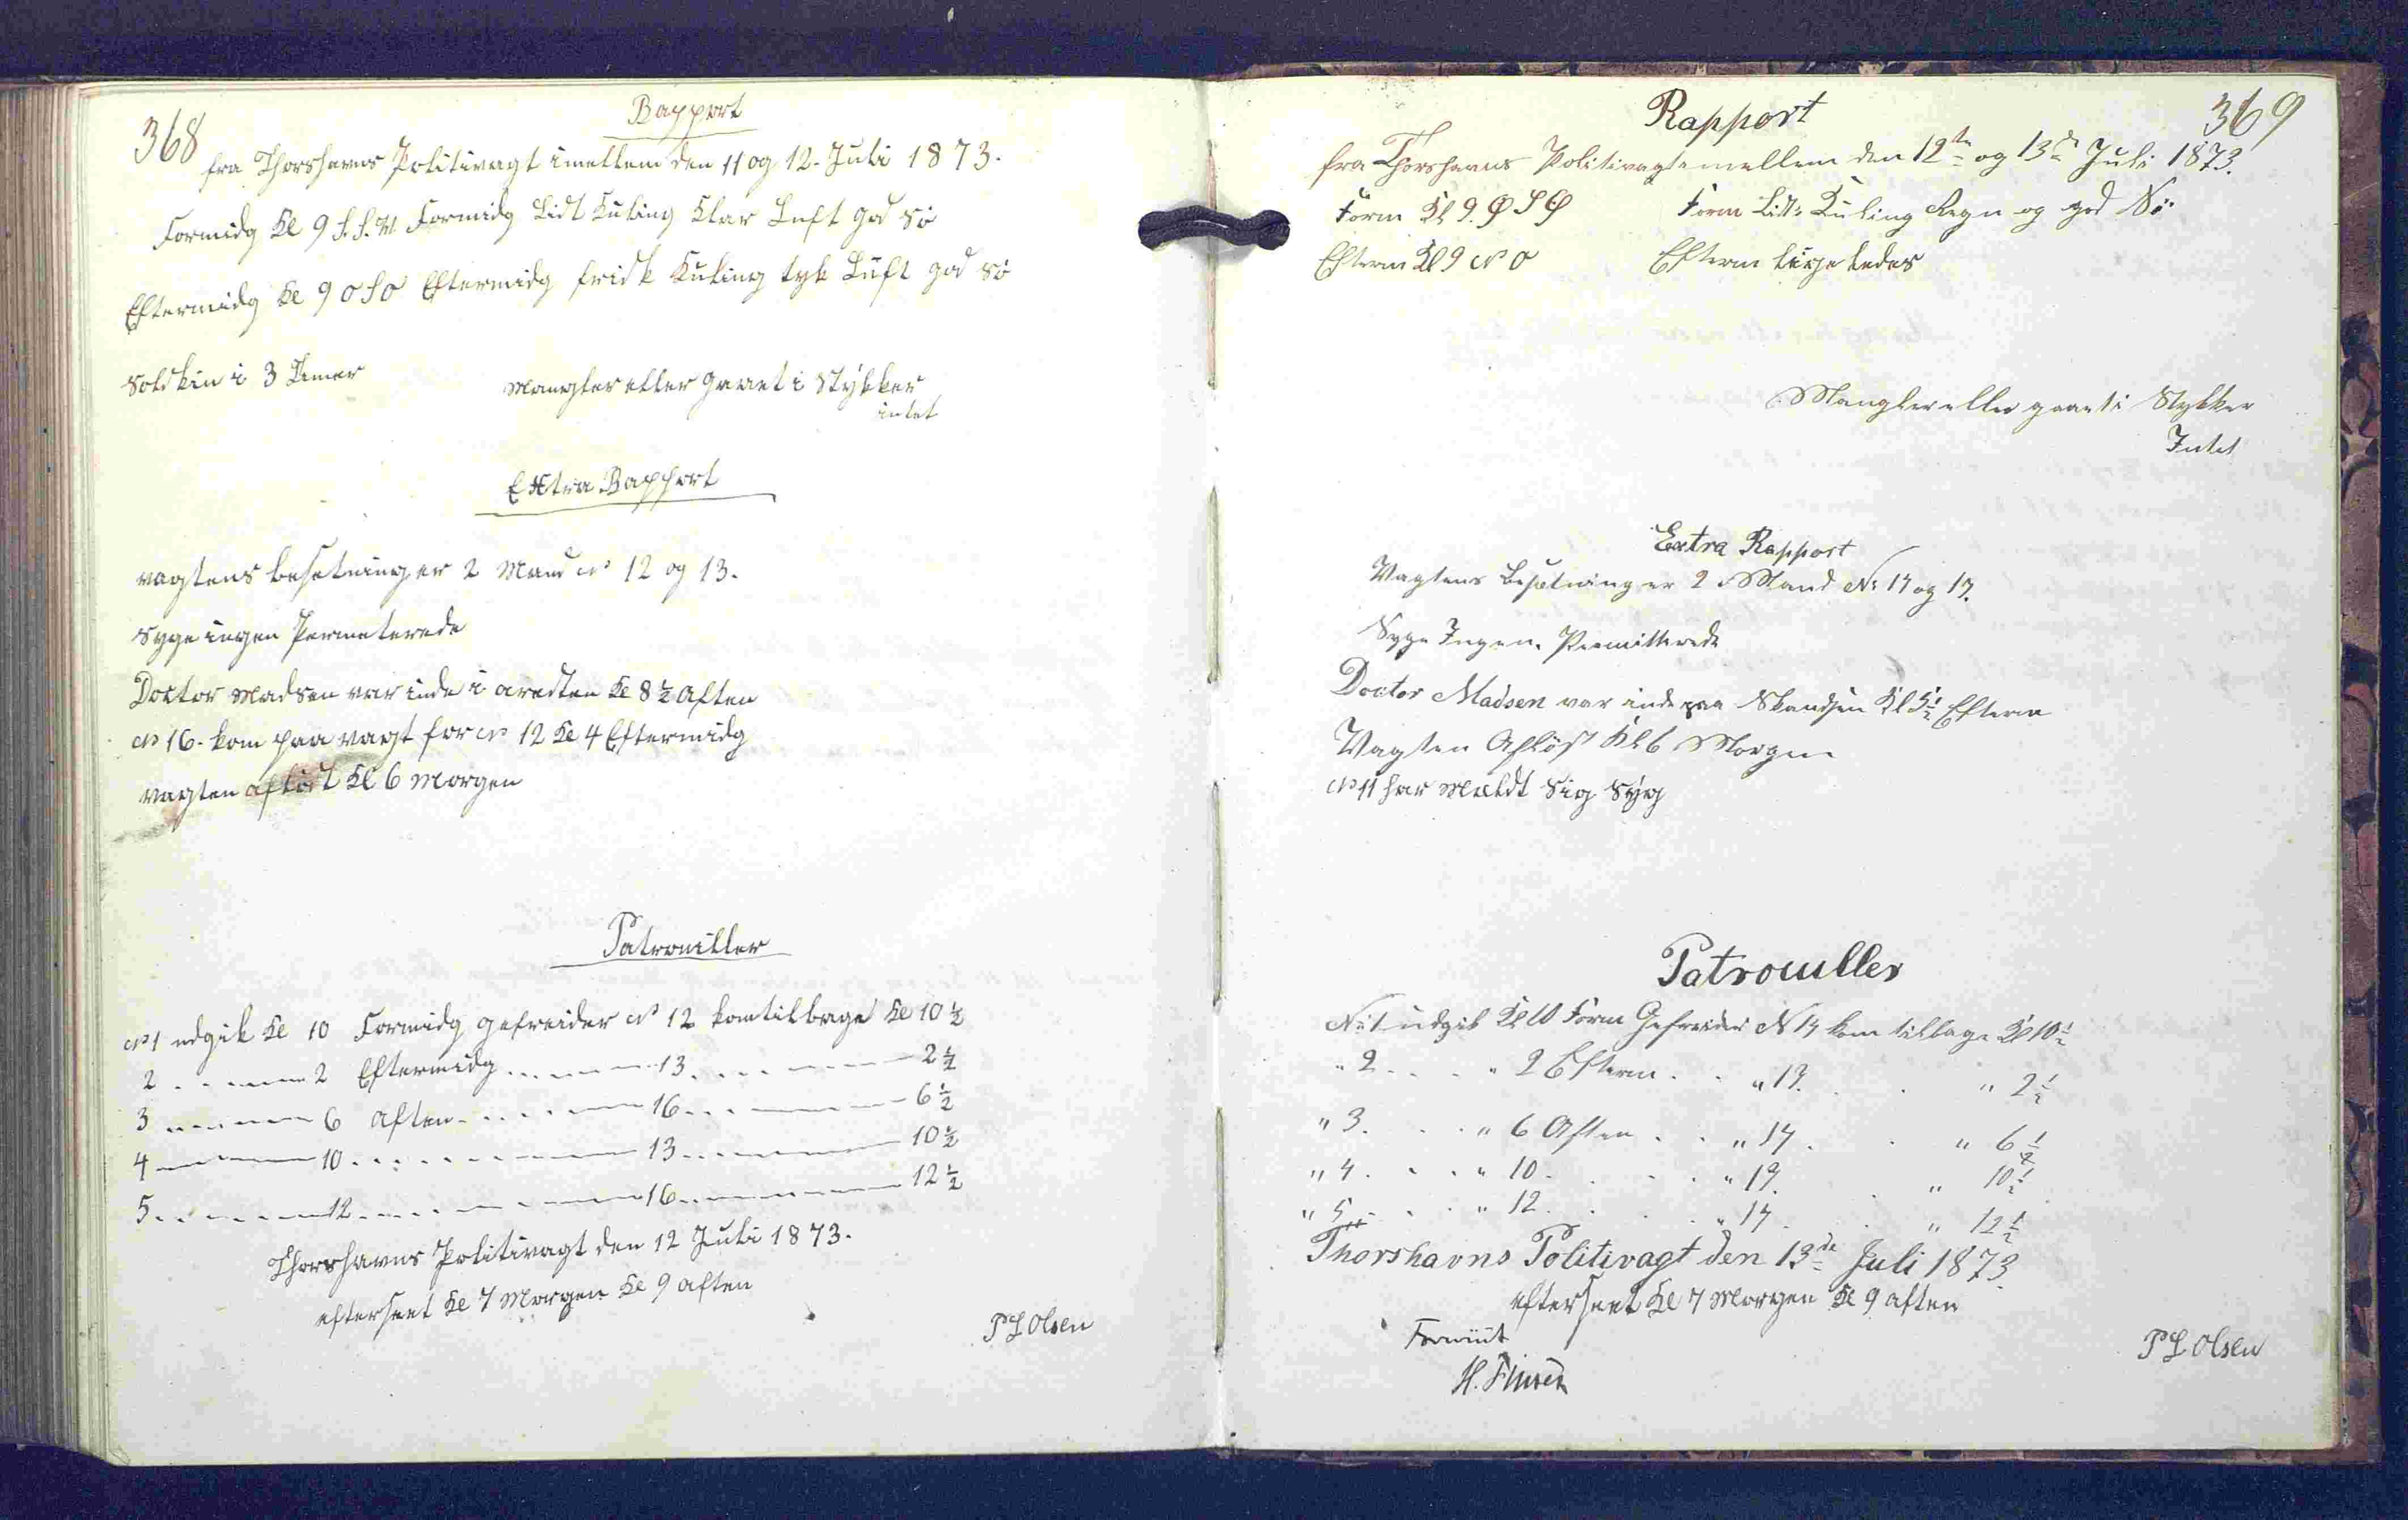 368
Rapport
fra Thorshavns Politivagt imellem den 11 og 12. Juli 1873.
Formidg Kl 9 S.S.V. Formidg Lidt Kuling Klar Luft god Sö
Eftermidg Kl 9 O S O Eftermidg frisk Kuling tyk Luft god Sö
Solskin i 3 Timer
Mangler eller gaaet i Stykker
intet
Extra Rapport
vagtens besetning er 2 Mand No 12 og 13.
Syge ingen Permeterede
Doctor Madsen var inde i aresten Kl 8 1/2 Aften
No 16. kom paa vagt for No 12 Kl 4 Eftermidg
vagten aflöst Kl 6 Morgen
Patrouiller
No 1 udgik Kl 10 Formidg gefreider No 12 kom tilbage Kl 10 1/2
2 2 Eftermidg 13 2 1/2
3 6 Aften 16 6 1/2
4 10 13 10 1/2
5 12 16 12 1/2
Thorshavns Politivagt den 12 Juli 1873.
efterseet Kl 7 Morgen Kl 9 aften
P L Olsen
369
Rapport
fra Thorshavns Politivagt emellem den 12te og 13de Juli 1873.
Form Kl 9. Ø S Ø Form Lidt Kuling Regn og god Sø
Efterm Kl 9 N O Efterm ligeledes
Mangler eller gaaet i Stykker
Intet
Extra Rapport
Vagtens Besætning er 2 Mand No 17 og 19.
Syge Ingen. Permitterede
Doctor Madsen var inde paa Skandsen Kl 5 1/2 Efterm
Vagten Afløst Kl 6 Morgen
No 11 har Meldt Sig Syg
Patrouiller
No 1 udgik Kl 10 Form Gefreider No 17 kom tilbage Kl 10 1/2
" 2 " 2 Efterm " 19. " 2 1/2
" 3. " 6 Aften " 17. " 6 1/2
" 4. " 10. " 19. " 10 1/2
" 5 " 12. " 17. " 12 1/2
Thorshavns Politivagt den 13de Juli 1873
efterseet Kl 7 Morgen Kl 9 aften
P L Olsen
H. Finsen